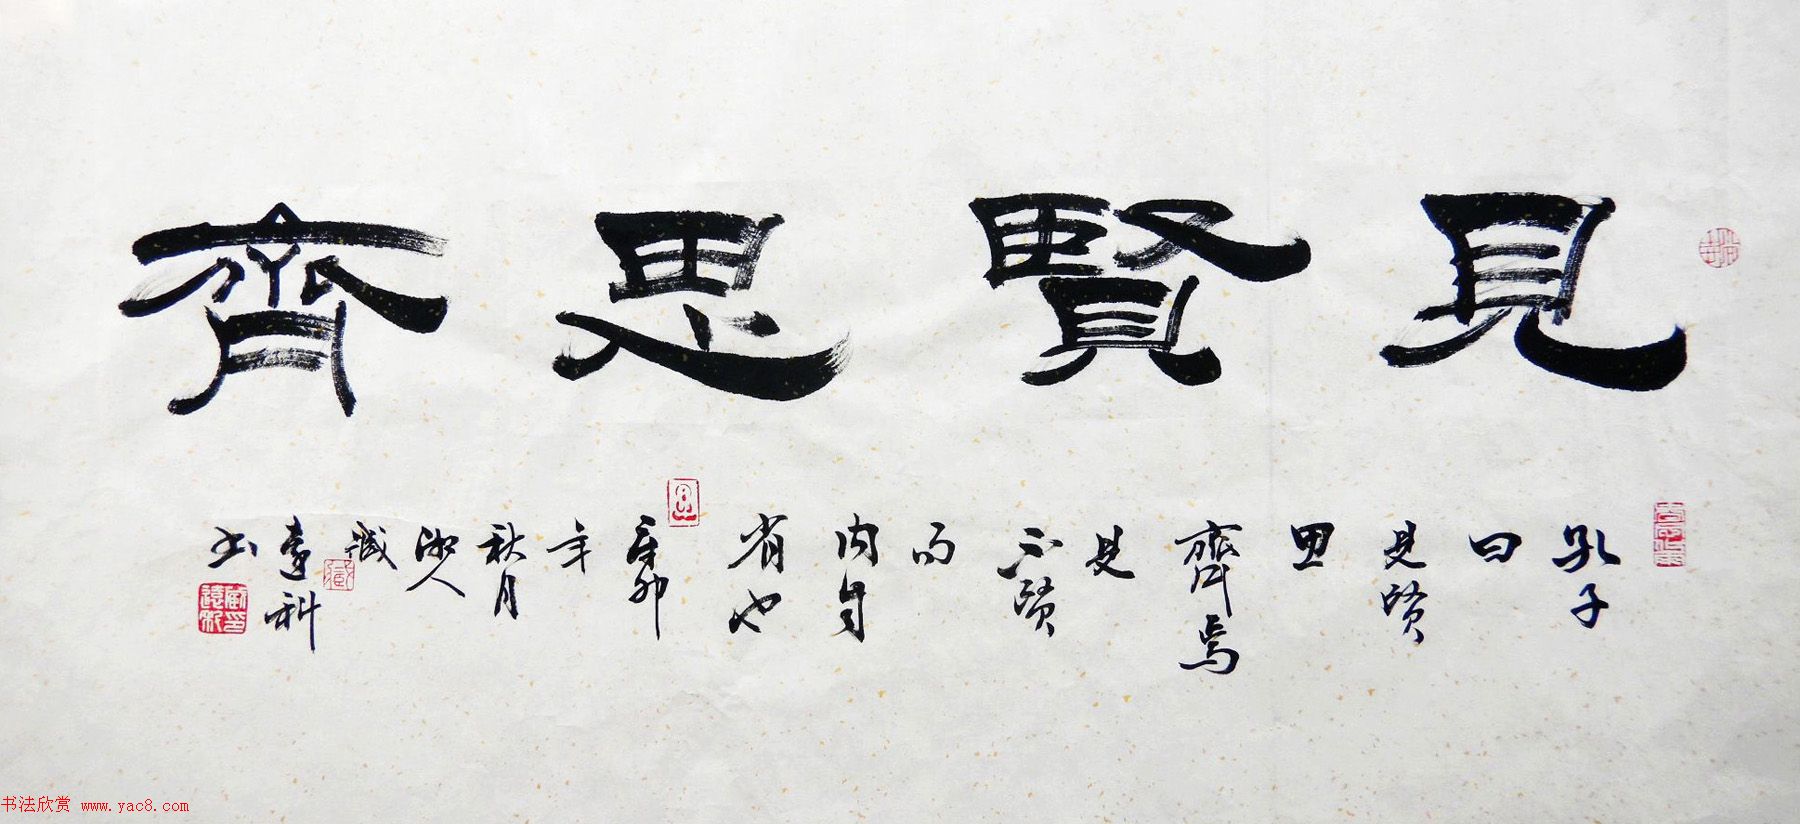 見賢思齊
孔子
曰
見賢
思
齊焉
見
不賢
而
内自
省也
辛卯
年
秋月
書
书法欣赏 www.yac8.com